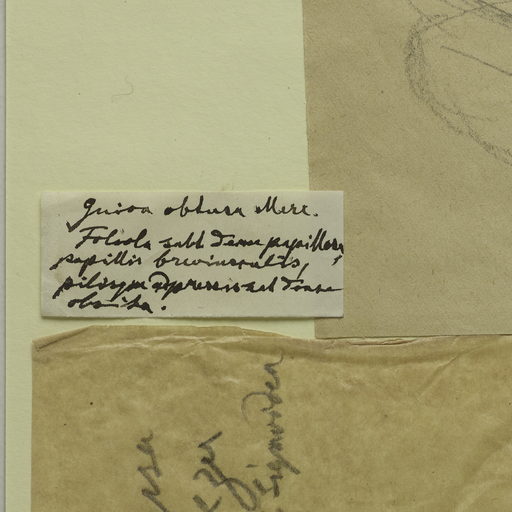 Guioa obtusa Merr.
Foliola subt dense papillosa,
papillis breviusculis,
pilisque adpressis sat dense
obsita.